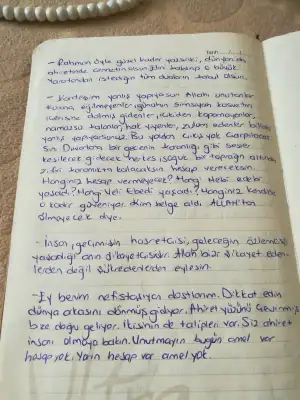 - Rahman öyle güzel kader yazsın ki, dünyan da,
ahiretinde cennetin olsun. Elini kaldırıp o büyük
Yaratandan istediğin tüm duaların kabul olsun.
- Kardeşim yanlış yapıyorsun Allahı unutanlar
Kurana, eğilmeyenler, günahın simsiyah kasvetinin
içerisine dalmış gidenler, içkiden kopamayanlar,
namazsız kalanlar, hak yiyenler, zulüm edenler
yanlış yapıyorsunuz. Bu yoldan çıkış yok Çarpılacak
Sın Duvarların bir gecenin karanlığı gibi sesler
kesilerek gidecek herkes ısoğuk bir toprağın altında,
zifiri karanlıkta kalacaksın hesap vereceksin.
Hanginiz hesap vermeyecek? Hangi Nebi ebedi
yaşadı? Hangi Veli Ebedi yaşadı? Hanginiz kendine
o kadar güveniyor ölüm belge aldı ALLAH'tan
Ölmeyecek diye.
- İnsan geçmişin hasretçisi, geleceğin özlemcisi
yaşadığı anın şikayetçisidir. Allah bizi şikayet eden-
lerden değil şükredenlerden eylesin.
- Ey benim nefis taşıyan dostlarım. Dikkat edin
dünya arkasını dönmüş gidiyor. Ahiret yüzünü çevirmiş
bize doğru geliyor. İkisinin de talipleri var. Siz ahiret
insanı olmaya bakın. Unutmayın bugün amel var
hesap yok. Yarın hesap var amel yok.